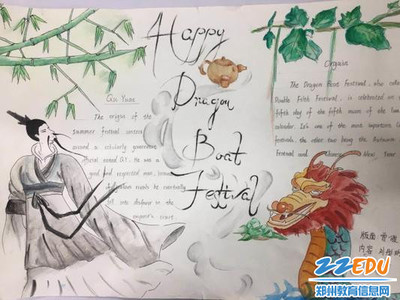 Happy
Dragon
Boat
Festival
Qu Yuan
The origin of the
summer festival centers
around a scholarly government
official named Qu. He was a
good and respected man,
Origin
The Dragon Boat Festival, also called
Double Fifth Festival, is celebrated on
fifth day of the fifth moon of the
calendar. It's one of the most important
festivals, the other two being the Autumn
Festival and Chinese New Year.
版面
内容
22EDU
郑州教育信息网